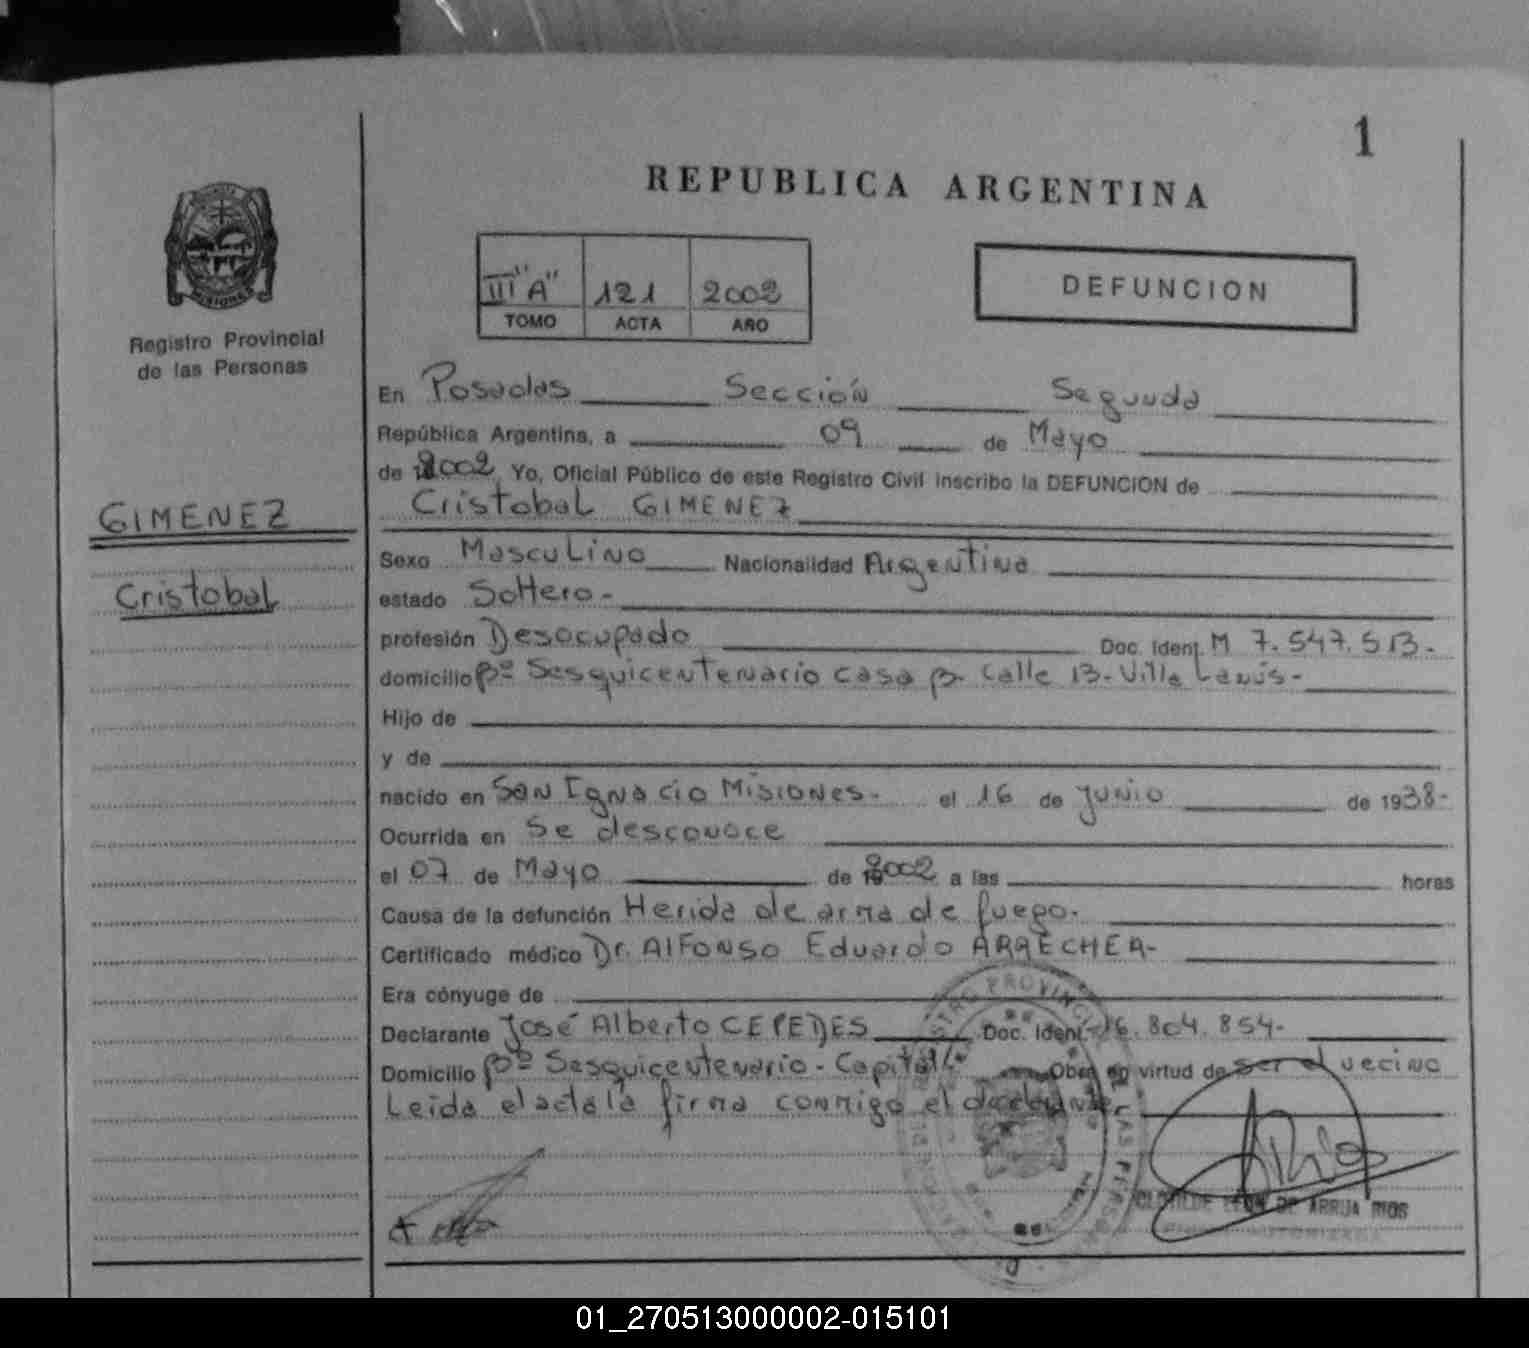 1
REPUBLICA ARGENTINA
MISIONES
Registro Provincial
de las Personas
III "A" 121 2002
TOMO ACTA AÑO
DEFUNCION
En Posadas Sección Segunda
República Argentina, a 09 de Mayo
de 2002 Yo, Oficial Público de este Registro Civil inscribo la DEFUNCION de
Cristobal GIMENEZ
GIMENEZ
Cristobal
Sexo Masculino Nacionalidad Argentina
estado Soltero-
profesión Desocupado Doc. Ident. M 7.547.513-
domicilio Bº Sesquicentenario casa B- Calle 13- Villa Lanús-
Hijo de
y de
nacido en San Ignacio Misiones- el 16 de Junio de 1938-
Ocurrida en Se desconoce
el 07 de Mayo de 2002 a las horas
Causa de la defunción Herida de arma de fuego-
Certificado médico Dr. Alfonso Eduardo ARRECHEA-
Era cónyuge de
Declarante José Alberto CEPEDES Doc. Ident. 16.804.854-
Domicilio Bº Sesquicentenario- Capital- Obra en virtud de ser el vecino
Leida el acta la firma conmigo el declarante
CLOTILDE LEON DE ARRUA RIOS
01_270513000002-015101